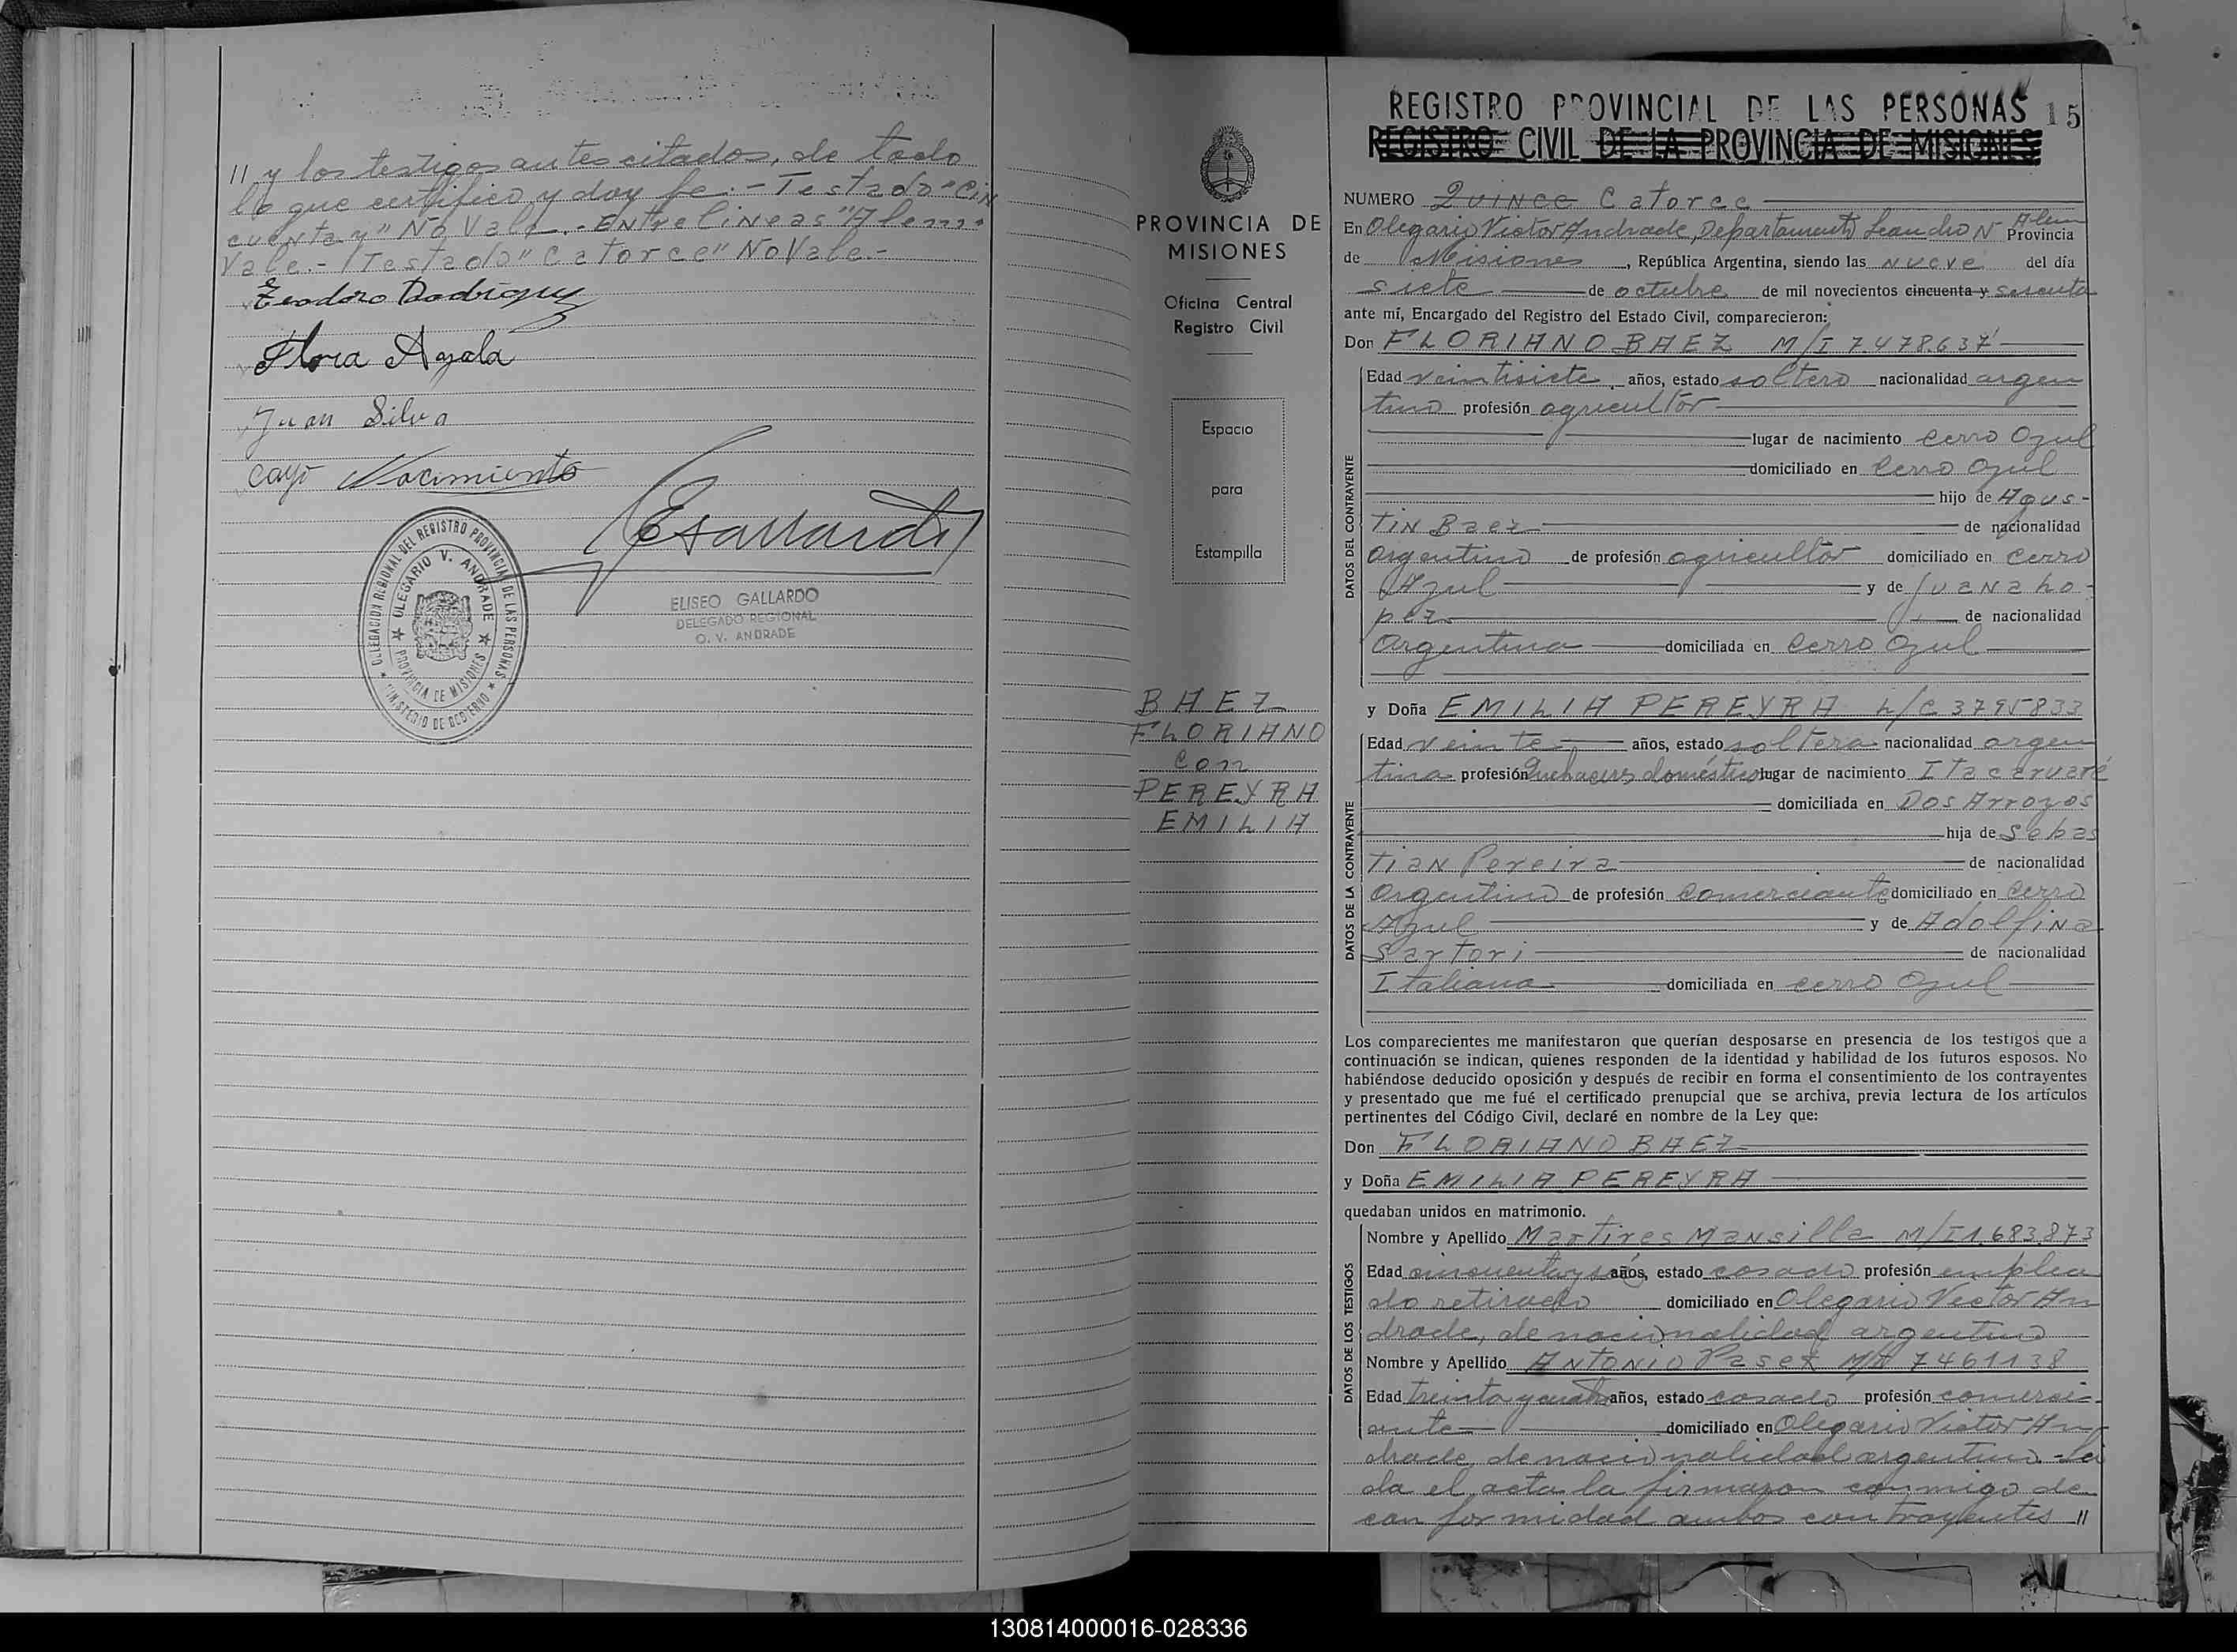 // y los testigos antes citados, de todo
lo que certifico y doy fe.- Testado "Cin
cuenta y" No Vale.- Entre lineas "Alem"
Vale.- Testado "Catorce" No Vale.-
Teodoro Rodriguez
Flora Ayala
Juan Silva
Cayo Nacimiento
DELEGACION REGIONAL DEL REGISTRO PROVINCIAL DE LAS PERSONAS
OLEGARIO V. ANDRADE
PROVINCIA DE MISIONES
MINISTERIO DE GOBIERNO
ELISEO GALLARDO
DELEGADO REGIONAL
O. V. ANDRADE
PROVINCIA DE
MISIONES
Oficina Central
Registro Civil
Espacio
para
Estampilla
BAEZ
FLORIANO
con
PEREYRA
EMILIA
REGISTRO PROVINCIAL DE LAS PERSONAS 15
REGISTRO CIVIL DE LA PROVINCIA DE MISIONES
NUMERO Quince Catorce
En Olegario Victor Andrade, Departamento Leandro N Alem Provincia
de Misiones, República Argentina, siendo las nueve del día
siete de octubre de mil novecientos cincuenta y sesenta
ante mí, Encargado del Registro del Estado Civil, comparecieron:
Don FLORIANO BAEZ M/I 7.478.637
DATOS DEL CONTRAYENTE
Edad veintisiete años, estado soltero nacionalidad argen
tino profesión agricultor
lugar de nacimiento Cerro Azul
domiciliado en Cerro Azul
hijo de Agus-
tin Baez de nacionalidad
argentino de profesión agricultor domiciliado en Cerro
Azul y de Juana Lo-
pez de nacionalidad
Argentina domiciliada en Cerro Azul
y Doña EMILIA PEREYRA L/C 3795833
DATOS DE LA CONTRAYENTE
Edad veinte años, estado soltera nacionalidad argen
tina profesión Quehaceres domésticos lugar de nacimiento Itacaruaré
domiciliada en Dos Arroyos
hija de Sebas
tian Pereira de nacionalidad
Argentino de profesión Comerciante domiciliado en Cerro
Azul y de Adolfina
Sartori de nacionalidad
Italiana domiciliada en Cerro Azul
Los comparecientes me manifestaron que querían desposarse en presencia de los testigos que a
continuación se indican, quienes responden de la identidad y habilidad de los futuros esposos. No
habiéndose deducido oposición y después de recibir en forma el consentimiento de los contrayentes
y presentado que me fué el certificado prenupcial que se archiva, previa lectura de los artículos
pertinentes del Código Civil, declaré en nombre de la Ley que:
Don FLORIANO BAEZ
y Doña EMILIA PEREYRA
quedaban unidos en matrimonio.
DATOS DE LOS TESTIGOS
Nombre y Apellido Martires Mansilla M/I 1.683.873
Edad cincuenta y años, estado casado profesión emplea
do retirado domiciliado en Olegario Victor An
drade, de nacionalidad argentino
Nombre y Apellido Antonio 7461138
Edad treinta y cuatro años, estado casado profesión comerci-
ante domiciliado en Olegario Victor An
drade, de nacionalidad argentino - Lei
da el acta la firmaron conmigo de
conformidad ambos contrayentes //
130814000016-028336